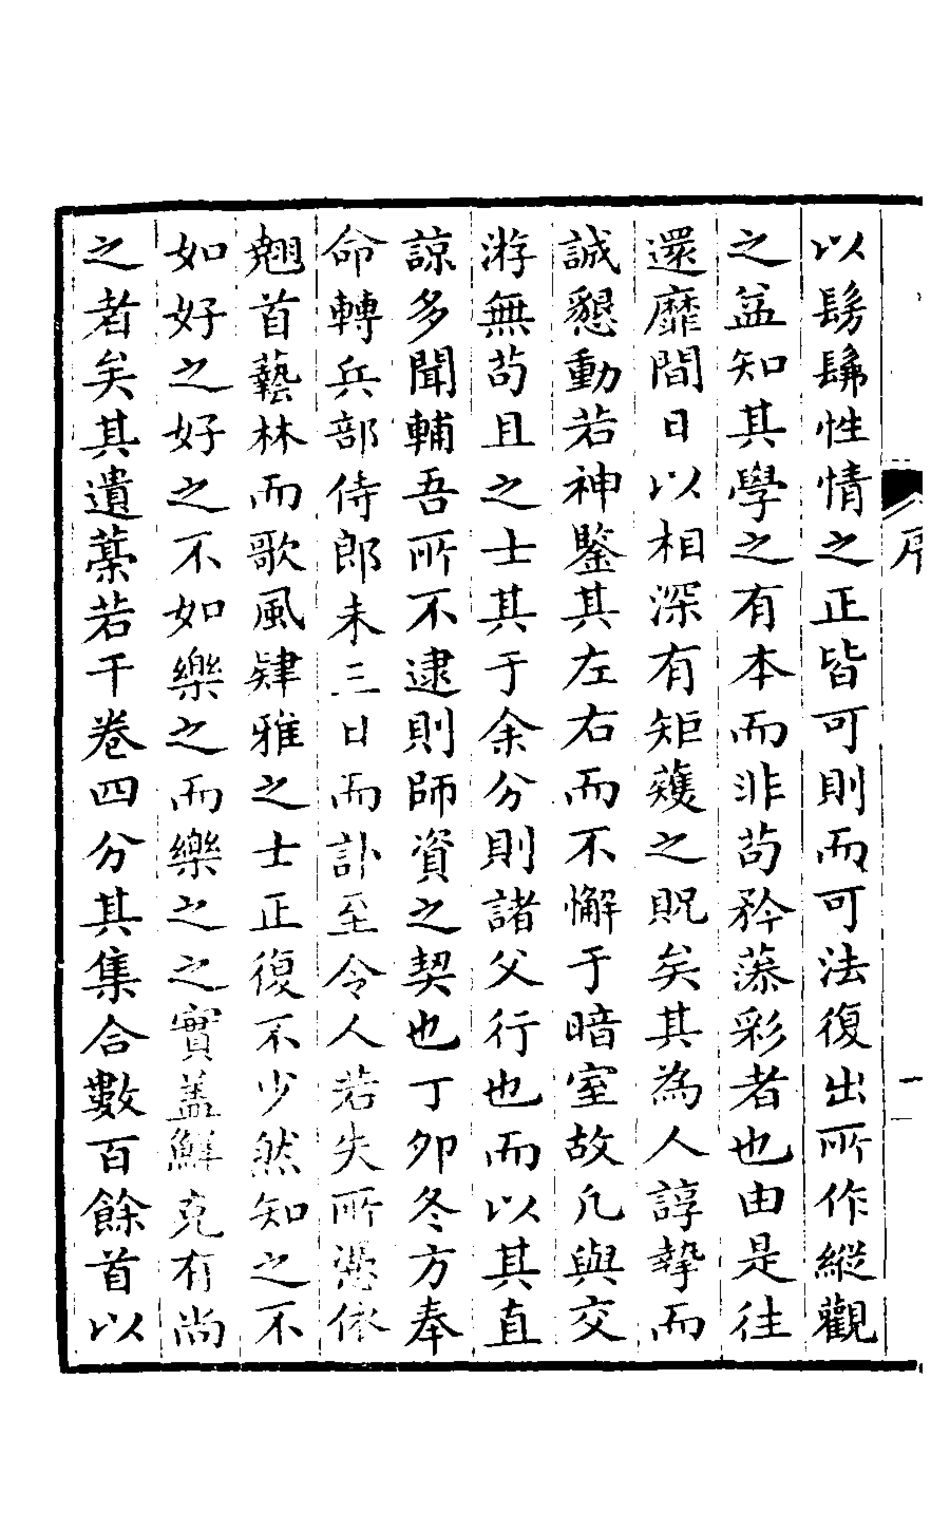 以髣髴性情之正皆可則而可法復出所作縱觀
之益知其學之有本而非茍矜藻彩者也由是往
還靡間日以相深有矩蒦之貺矣其為人諄摯而
誠懇動若神鑒其左右而不懈于暗室故凢與交
游無茍且之士其于余分則諸父行也而以其直
諒多聞輔吾所不逮則師資之契也丁夘冬方奉
命轉兵部侍郎未三日而訃至令人若失所憑依
翹首藝林而歌風肄雅之士正復不少然知之不
如好之好之不如樂之而樂之之實盖鮮克有尚
之者矣其遺藁若干卷四分其集合數百餘首以
序
一